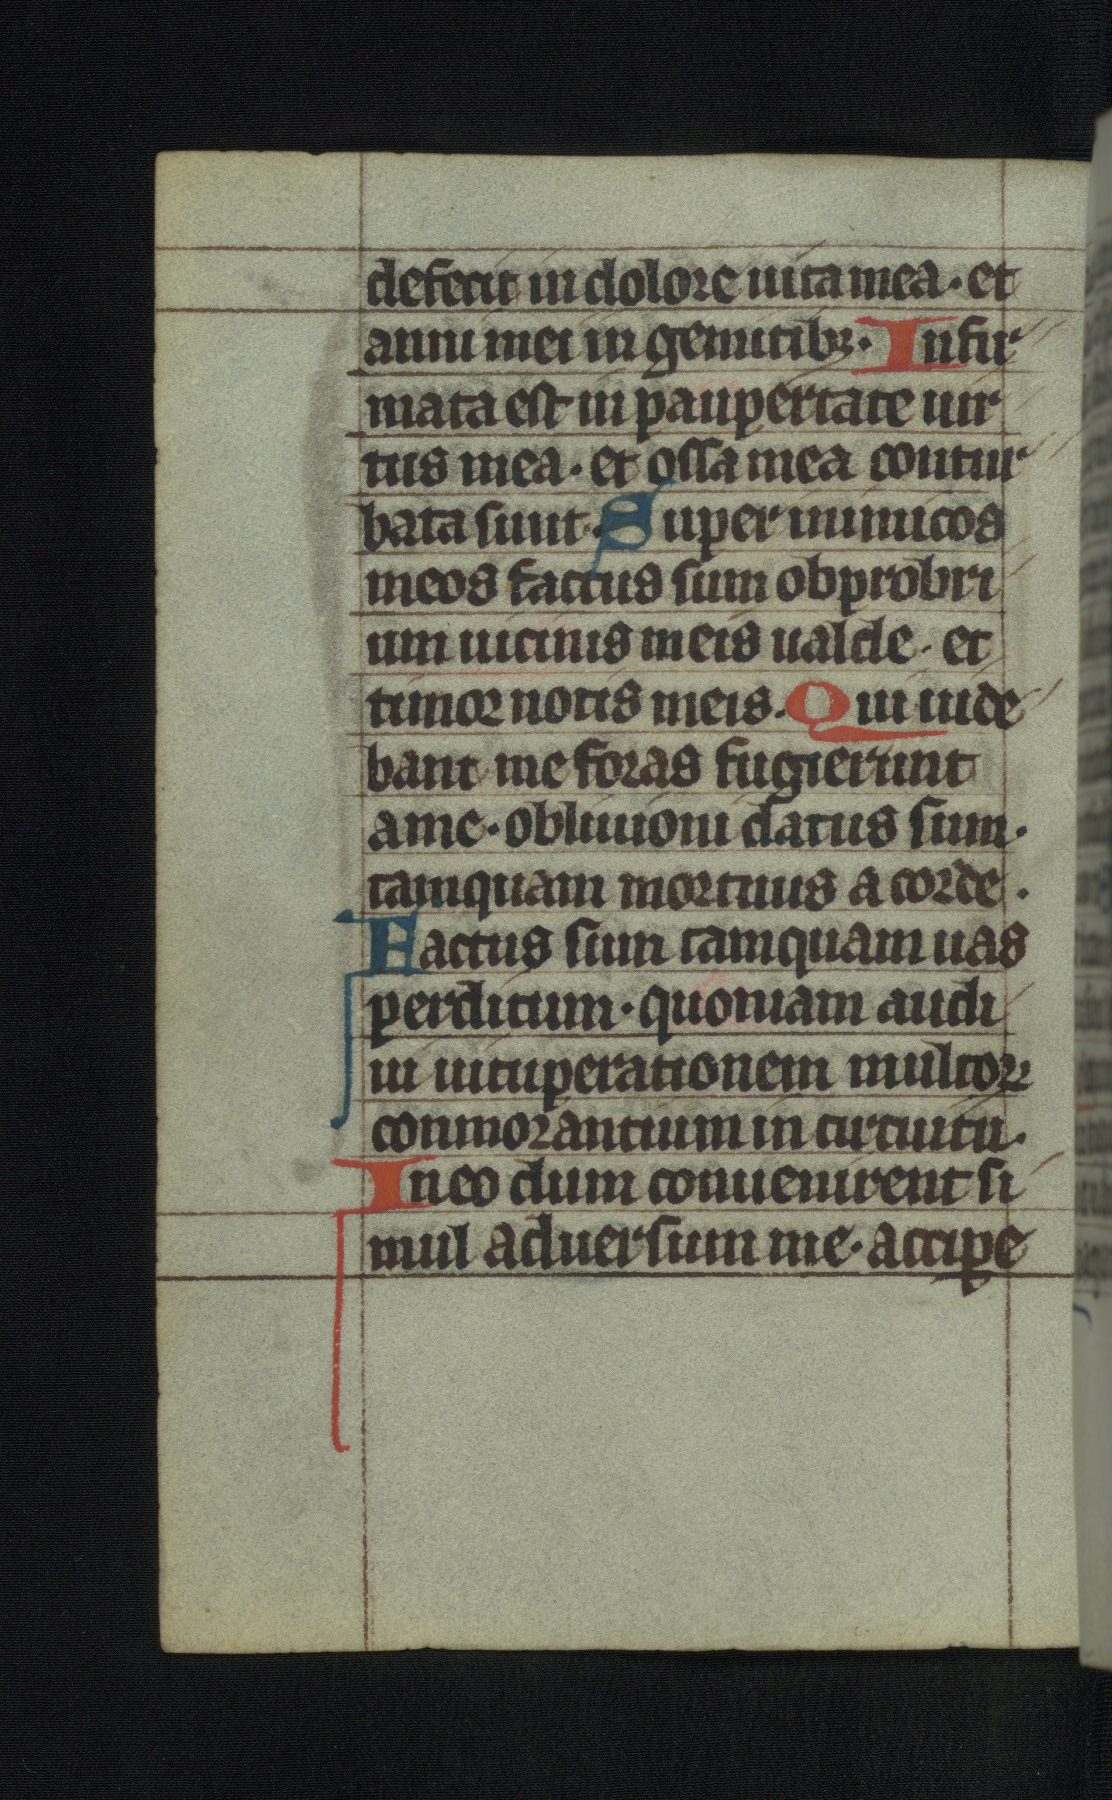 defecit in dolore uita mea · et
anni mei in gemitibꝫ · Infir
mata est in paupertate uir
tus mea · et ossa mea contur
bata sunt · Super inimicos
meos factus sum obprobri
um uicinis meis ualde · et
timor notis meis · Qui uide
bant me foras fugierunt
a me · obliuioni datus sum ·
tamquam mortuus a corde ·
Factus sum tamquam uas
perditum · quoniam audi
ui uituperationem multoꝝ
conmorantium in circuitu ·
In eo dum conuenirent si
mul aduersum me · accipe